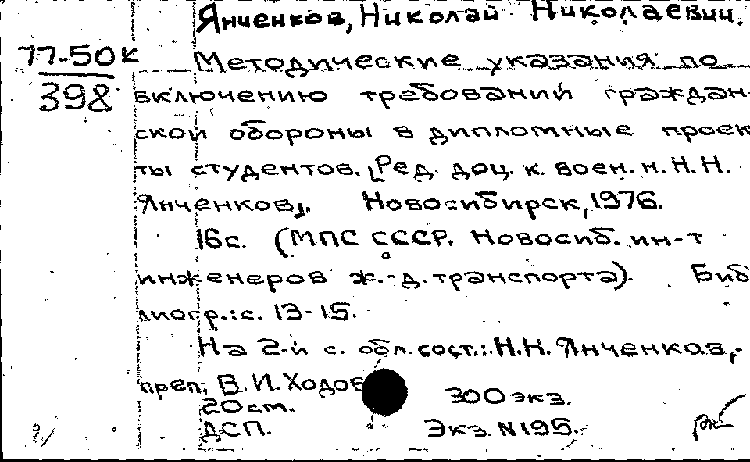 Янченков, Николай Николаевич.
77-50к
398
Методические указания по
включению требований граждан-
ской обороны в дипломные проек-
ты студентов. [Ред. доц. к. воен. н. Н.Н.
Янченков]. Новосибирск, 1976.
16с. (МПС СССР. Новосиб. ин-т
инженеров ж.-д. транспорта). Биб-
лиогр.: с. 13-15.
На 2-й с. обл. сост.: Н.Н. Янченков,
преп. В.И. Ходов
20см. 300 экз.
ДСП. Экз. N195.